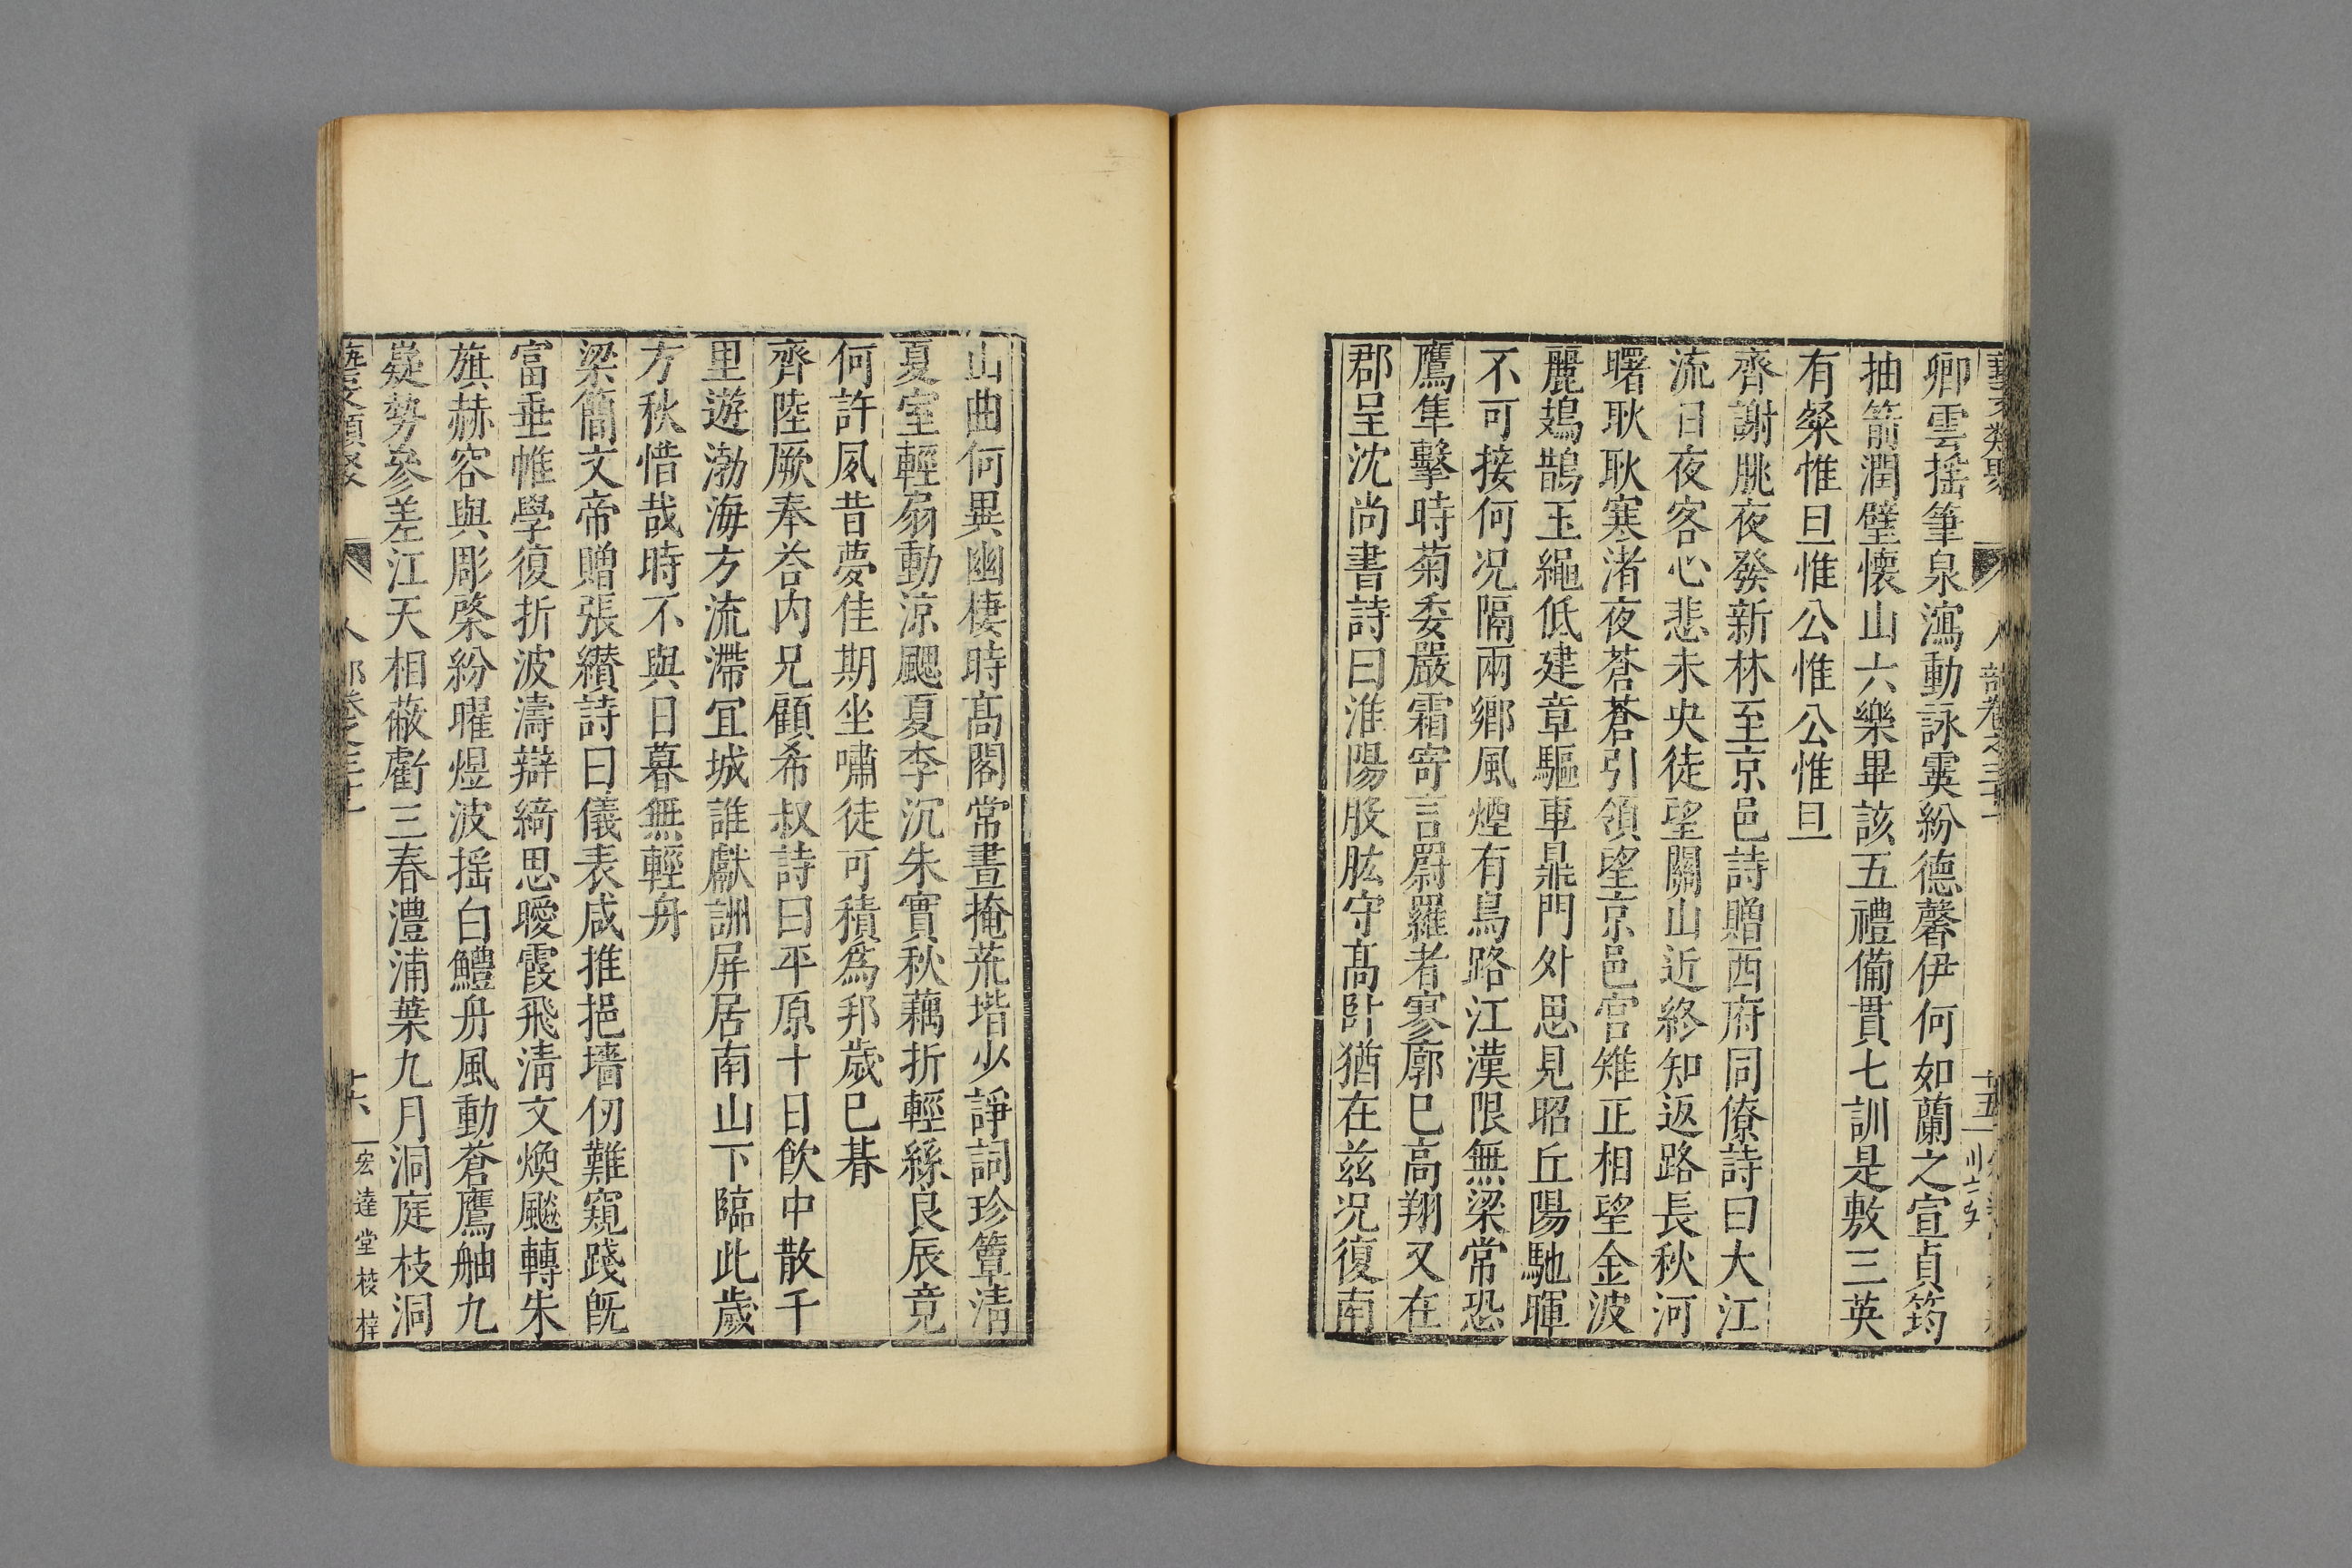 藝文類聚 人部卷之三十一 十五
卿雲揺筆泉瀉動詠霙紛德馨伊何如蘭之宣貞筠
抽箭潤璧懷山六樂畢該五禮備貫七訓是敷三英
有粲惟旦惟公惟公惟旦
齊謝朓夜發新林至京邑詩贈西府同僚詩曰大江
流日夜客心悲未央徒望關山近終知返路長秋河
曙耿耿寒渚夜蒼蒼引領望京邑宮雉正相望金波
麗鳷鵲玉繩低建章驅車鼎門外思見昭丘陽馳暉
不可接何况隔兩鄉風煙有鳥路江漢限無梁常恐
鷹隼擊時菊委嚴霜寄言罻羅者寥廓巳高翔又在
郡呈沈尚書詩曰淮陽股肱守髙卧猶在兹况復南
山曲何異幽棲時髙閣常晝掩荒堦少諍詞珍簟清
夏室輕扇動涼颸夏李沉朱實秋藕折輕絲良辰竟
何許夙昔夢佳期坐嘯徒可積爲邦歲巳朞
齊陸厥奉荅内兄顧希叔詩曰平原十日飲中散千
里遊渤海方流滯宜城誰獻訓屏居南山下臨此歲
方秋惜哉時不與日暮無輕舟
梁簡文帝贈張纘詩曰儀表咸推挹墻仞難窺踐旣
富垂帷學復折波濤辯綺思曖霞飛淸文煥飈轉朱
旗赫容與彫棨紛曜煜波揺白鱧舟風動蒼鷹舳九
嶷勢參差江天相蔽虧三春澧浦葉九月洞庭枝洞
藝文類聚 人部卷之三十一 十六 宏達堂校梓